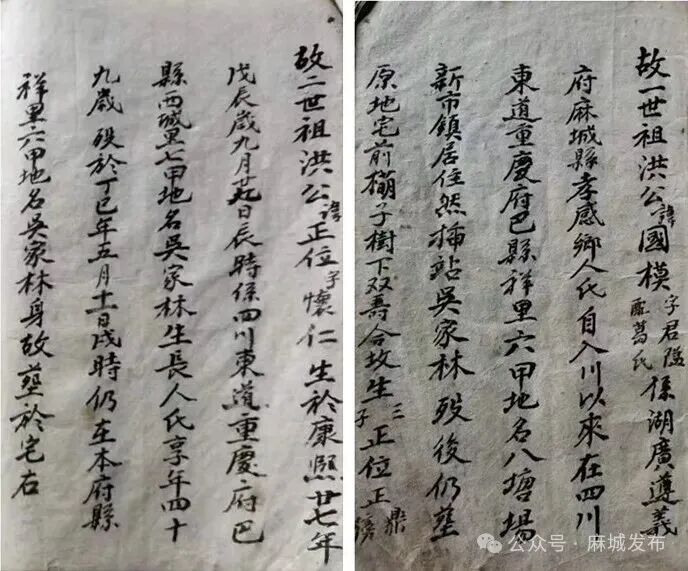 故一世祖洪公諱國模字君配葛氏係湖廣遵義
府麻城縣孝感鄉人氏自入川以來在四川
東道重慶府巴縣祥里六甲地名八塘場
新市鎮居住然插站吳家林歿後仍塟
原地宅前子樹下双壽合坟生二子正位正鼎
故二世祖洪公諱正位字懷仁生於康熙廿七年
戊辰歲九月廿九日辰時係四川東道重慶府巴
縣西城里七甲地名吳家林生長人氏享年四十
九歲 歿於丁巳年五月十一日戌時仍在本府縣
祥里六甲地名吳家林身故塟於宅右
公众号·麻城发布